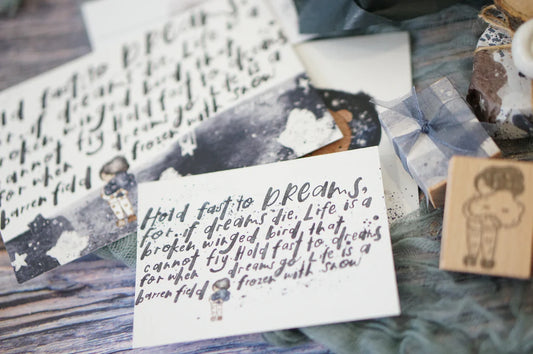 Hold fast to DREAMS,
for if dreams die, Life is a
broken winged bird, that
cannot fly. Hold fast to dreams
for when dreams go Life is a
barren field frozen with snow
Hold fast to DREAMS,
for if dreams die, Life is a
broken winged bird, that
cannot fly. Hold fast to dreams
for when dreams go Life is a
barren field frozen with snow